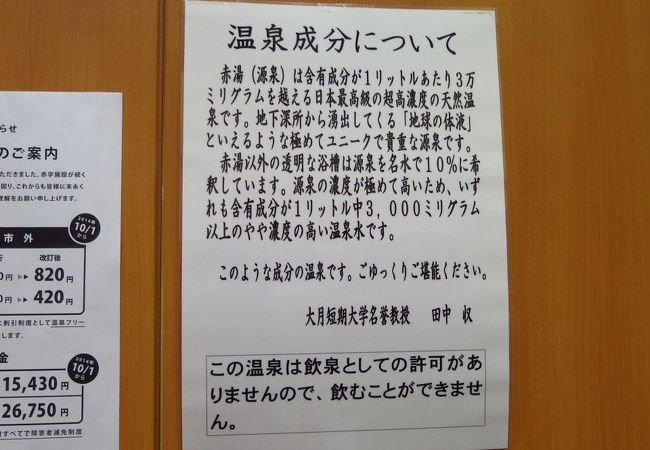 温泉成分について
赤湯（源泉）は含有成分が１リットルあたり３万
ミリグラムを越える日本最高級の超高濃度の天然温
泉です。地下深所から湧出してくる「地球の体液」
といえるような極めてユニークで貴重な源泉です。
赤湯以外の透明な浴槽は源泉を名水で１０％に希
釈しています。源泉の濃度が極めて高いため、いず
れも含有成分が１リットル中３，０００ミリグラム
以上のやや濃度の高い温泉水です。
このような成分の温泉です。ごゆっくりご堪能ください。
大月短期大学名誉教授　田中　収
この温泉は飲泉としての許可があ
りませんので、飲むことができませ
ん。
らせ
のご案内
ただきました、赤字施設が続く
図り、これからも皆様に末永く
理解をお願い申し上げます。
2014年
10/1
から
市 外
行 改訂後
0円 ▶▶ 820円
0円 ▶▶ 420円
に割引制度として温泉フリー
します。
金
2014年
10/1
から
15,430円
26,750円
すべてで障害者減免制度